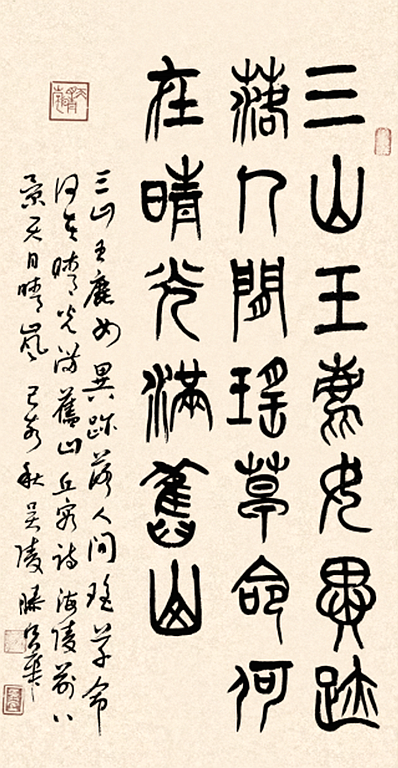 三山王鹿女異跡
落人間瑤草命何
在晴光滿舊山
三山王鹿女異跡落人間瑤草命
何在晴光滿舊山丘容詩海陵前八
景天目晴嵐己亥秋吳陵滕華